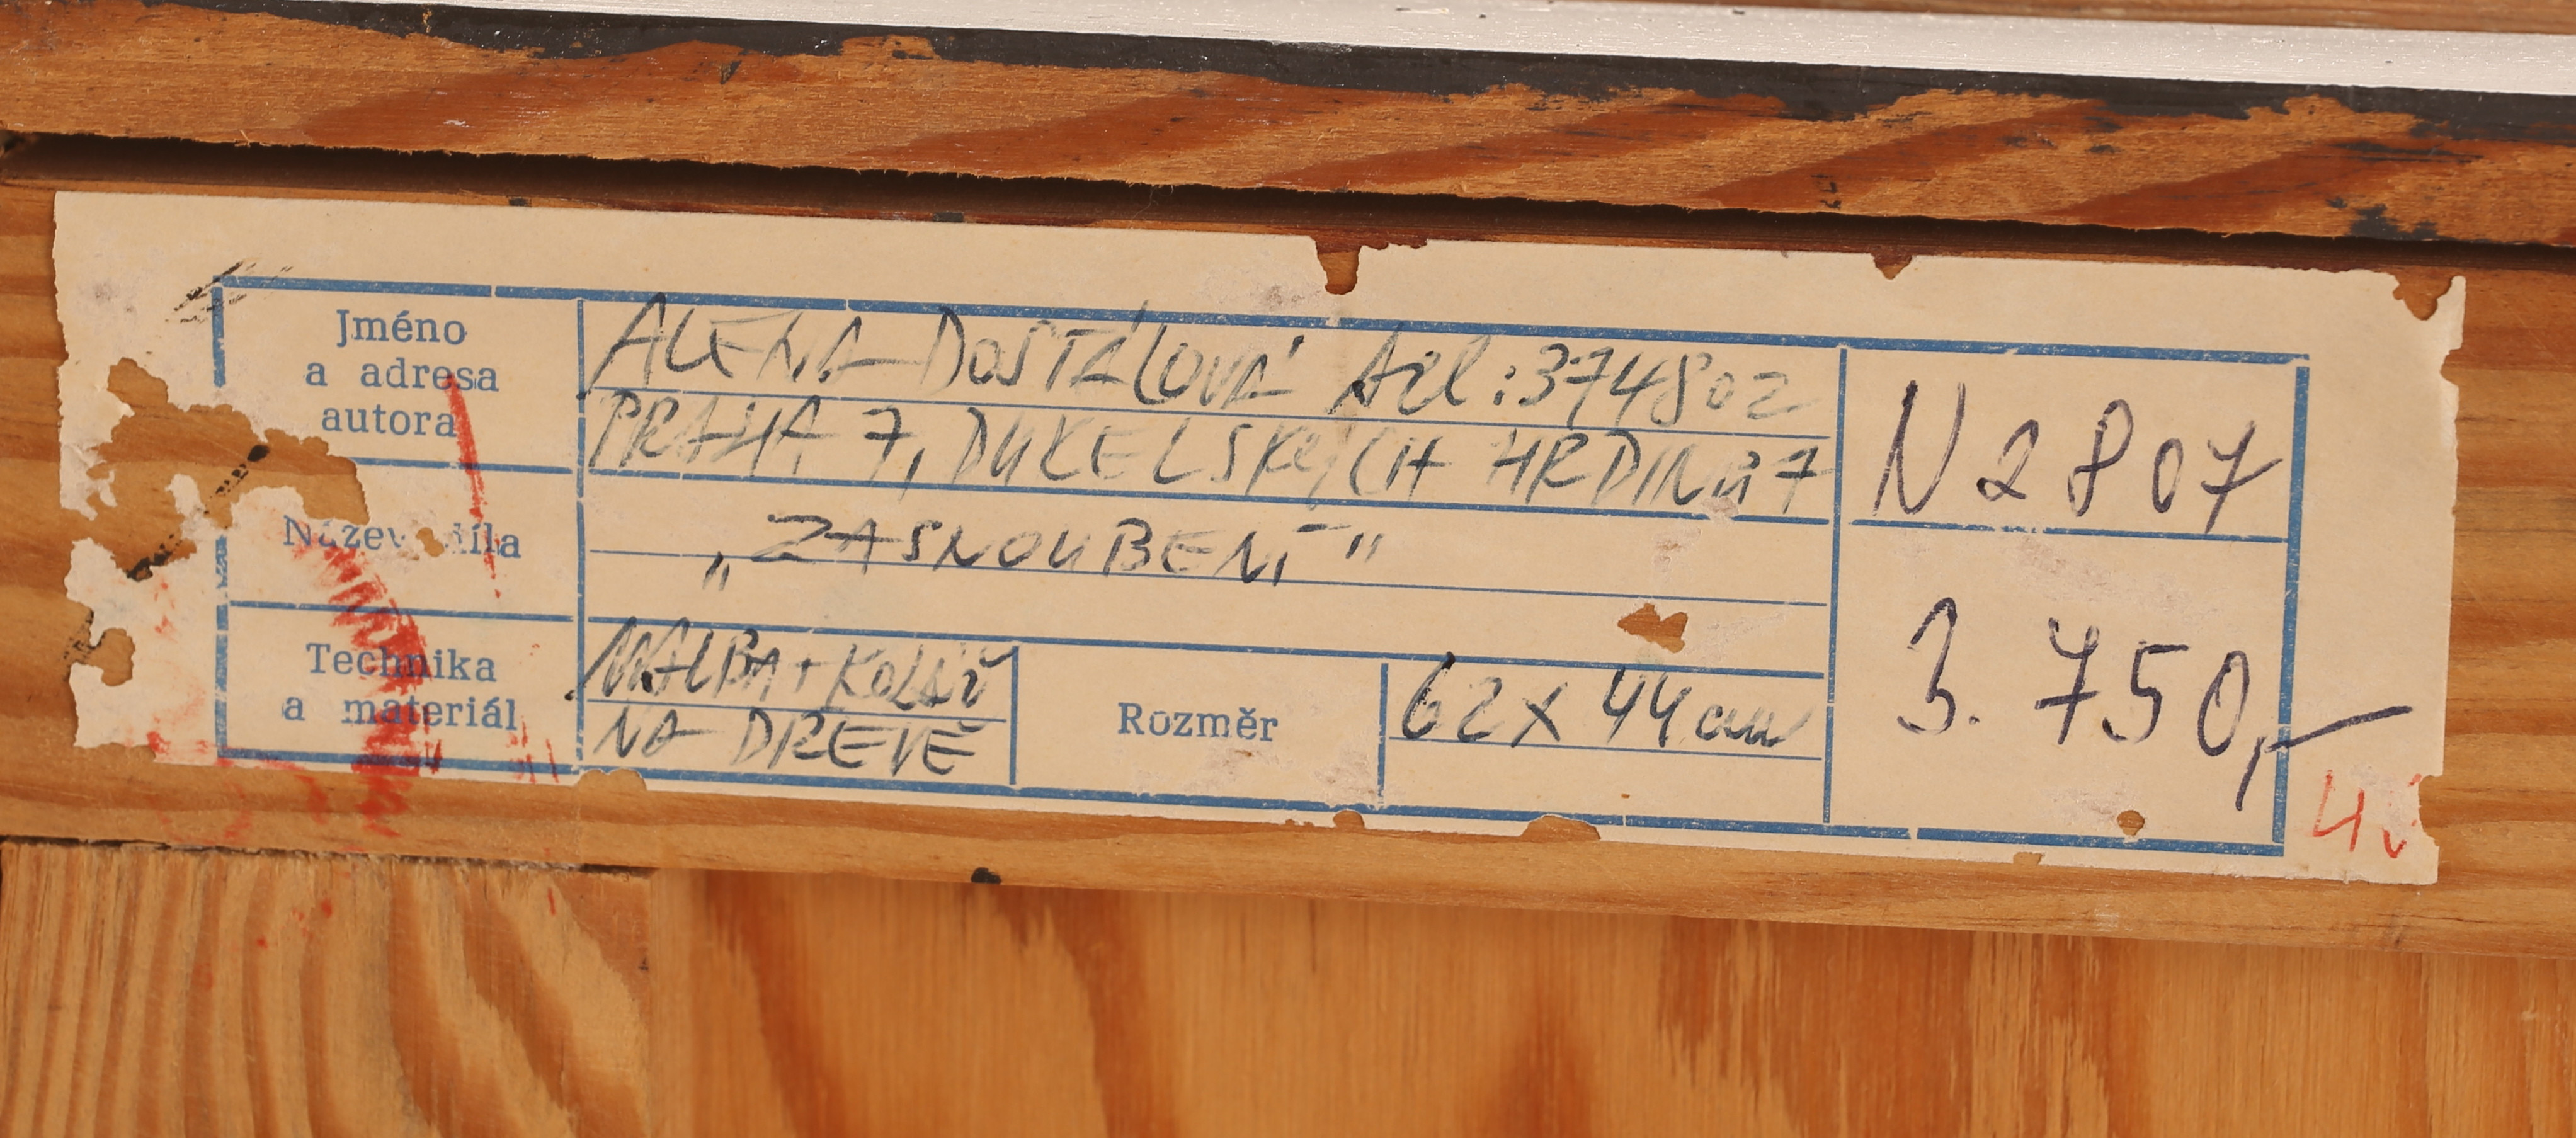 Jméno
a adresa
autora
ALENA DOSTÁLOVÁ tel: 374802
PRAHA 7, DUKELSKÝCH HRDINŮ 7
N 2807
Název díla
„ZASNOUBENÍ"
3.750,-
Technika
a materiál
MALBA + KOLÁŽ
NA DŘEVĚ
Rozměr
62 x 44 cm